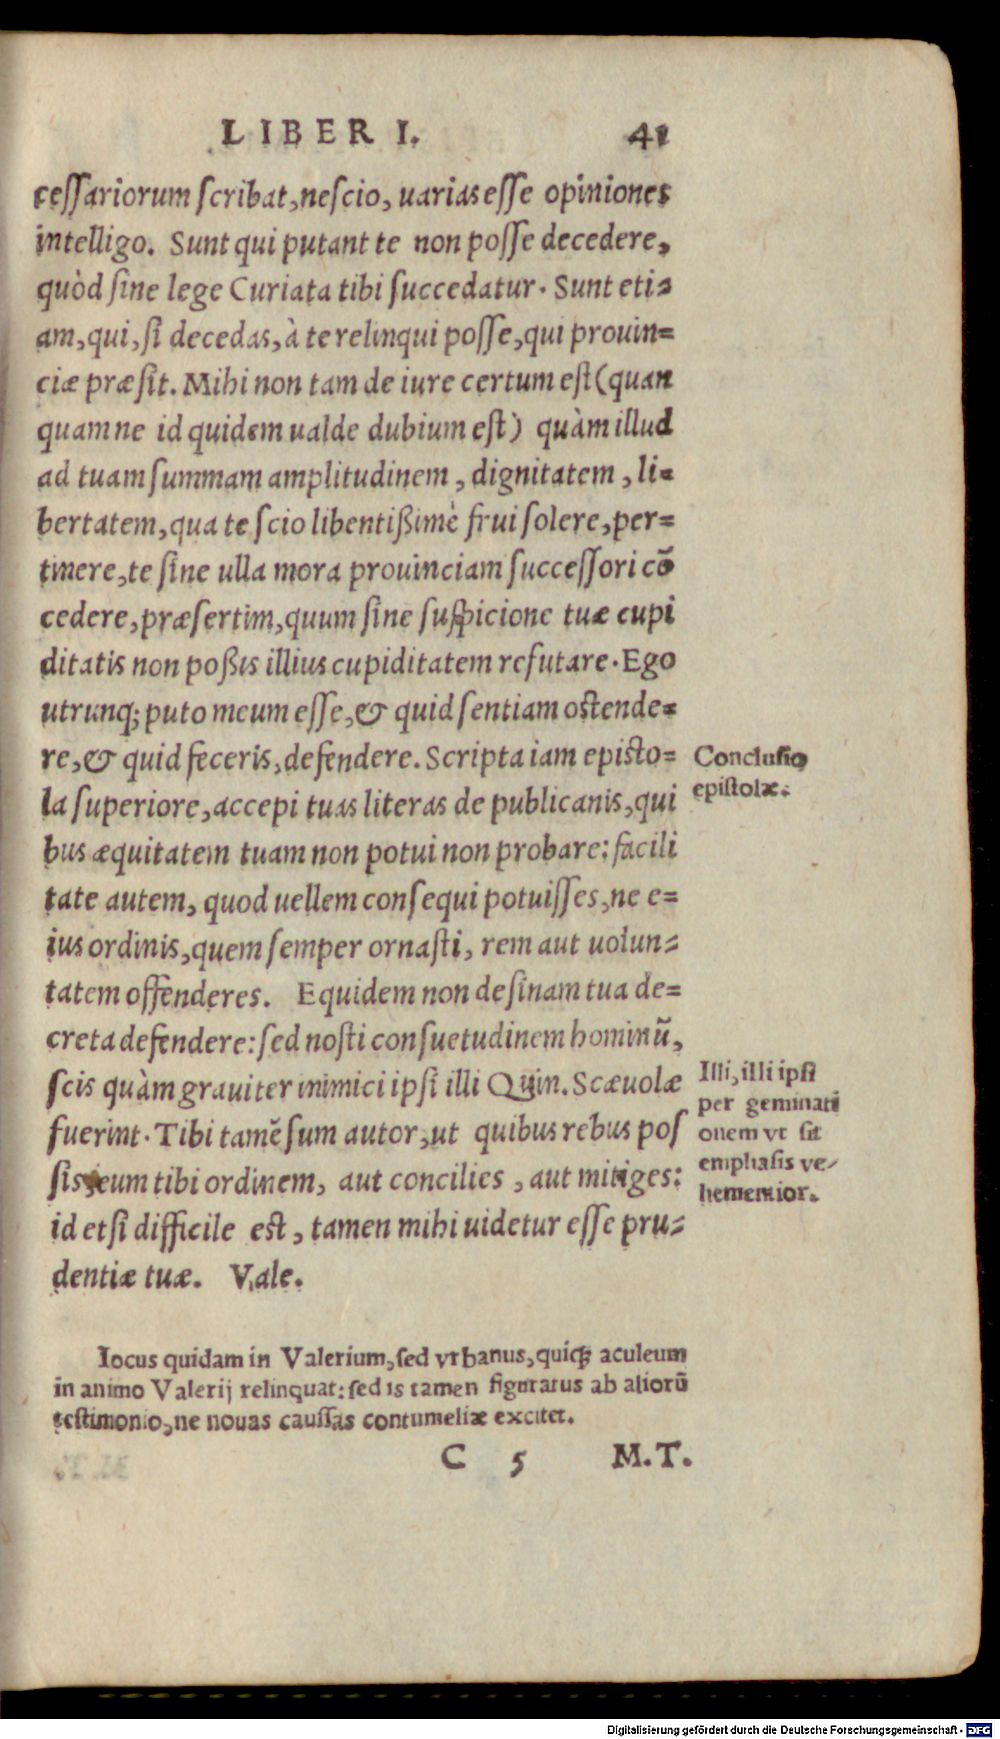 LIBER I. 41
ceſſariorum ſcribat, neſcio, uarias eſſe opiniones
intelligo. Sunt qui putant te non poſſe decedere,
quòd ſine lege Curiata tibi ſuccedatur. Sunt eti=
am, qui, ſi decedas, à te relinqui poſſe, qui prouin=
ciæ præſit. Mihi non tam de iure certum eſt (quan
quam ne id quidem ualde dubium eſt) quàm illud
ad tuam ſummam amplitudinem, dignitatem, li=
bertatem, qua te ſcio libentißimè frui ſolere, per=
tinere, te ſine ulla mora prouinciam ſucceſſori cō
cedere, præſertim, quum ſine ſuſpicione tuæ cupi
ditatis non poßis illius cupiditatem refutare. Ego
utrunq; puto meum eſſe, & quid ſentiam oſtende=
re, & quid feceris, defendere. Scripta iam epiſto=
la ſuperiore, accepi tuas literas de publicanis, qui
bus æquitatem tuam non potui non probare: facili
tate autem, quod uellem conſequi potuiſſes, ne e=
ius ordinis, quem ſemper ornaſti, rem aut uolun=
tatem offenderes. Equidem non deſinam tua de=
creta defendere: ſed noſti conſuetudinem hominū,
ſcis quàm grauiter inimici ipſi illi Quin. Scæuolæ
fuerint. Tibi tamē ſum autor, ut quibus rebus poſ
ſis, eum tibi ordinem, aut concilies, aut mitiges:
id etſi difficile eſt, tamen mihi uidetur eſſe pru=
dentiæ tuæ. Vale.
Concluſio
epiſtolæ.
Illi, illi ipſi
per geminati
onem vt ſit
emphaſis ve=
hementior.
Iocus quidam in Valerium, ſed vrbanus, quiq; aculeum
in animo Valerij relinquat: ſed is tamen figuratus ab aliorū
teſtimonio, ne nouas cauſſas contumeliæ excitet.
C 5 M.T.
Digitalisierung gefördert durch die Deutsche Forschungsgemeinschaft - DFG